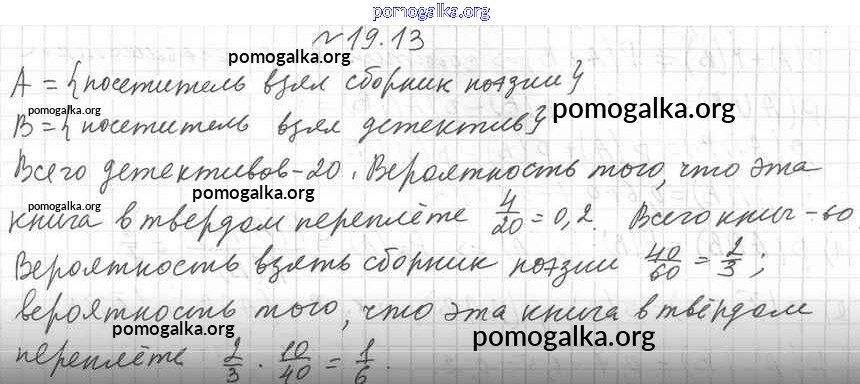 pomogalka.org
№19.13
pomogalka.org
A = {посетитель взял сборник поэзии}
pomogalka.org
pomogalka.org
B = {посетитель взял детектив}
Всего детективов-20. Вероятность того, что эта
pomogalka.org
pomogalka.org
книга в твердом переплёте 4/20 = 0,2. Всего книг - 60.
Вероятность взять сборник поэзии 40/60 = 2/3;
вероятность того, что эта книга в твёрдом
pomogalka.org
pomogalka.org
переплёте 2/3 · 10/40 = 1/6.